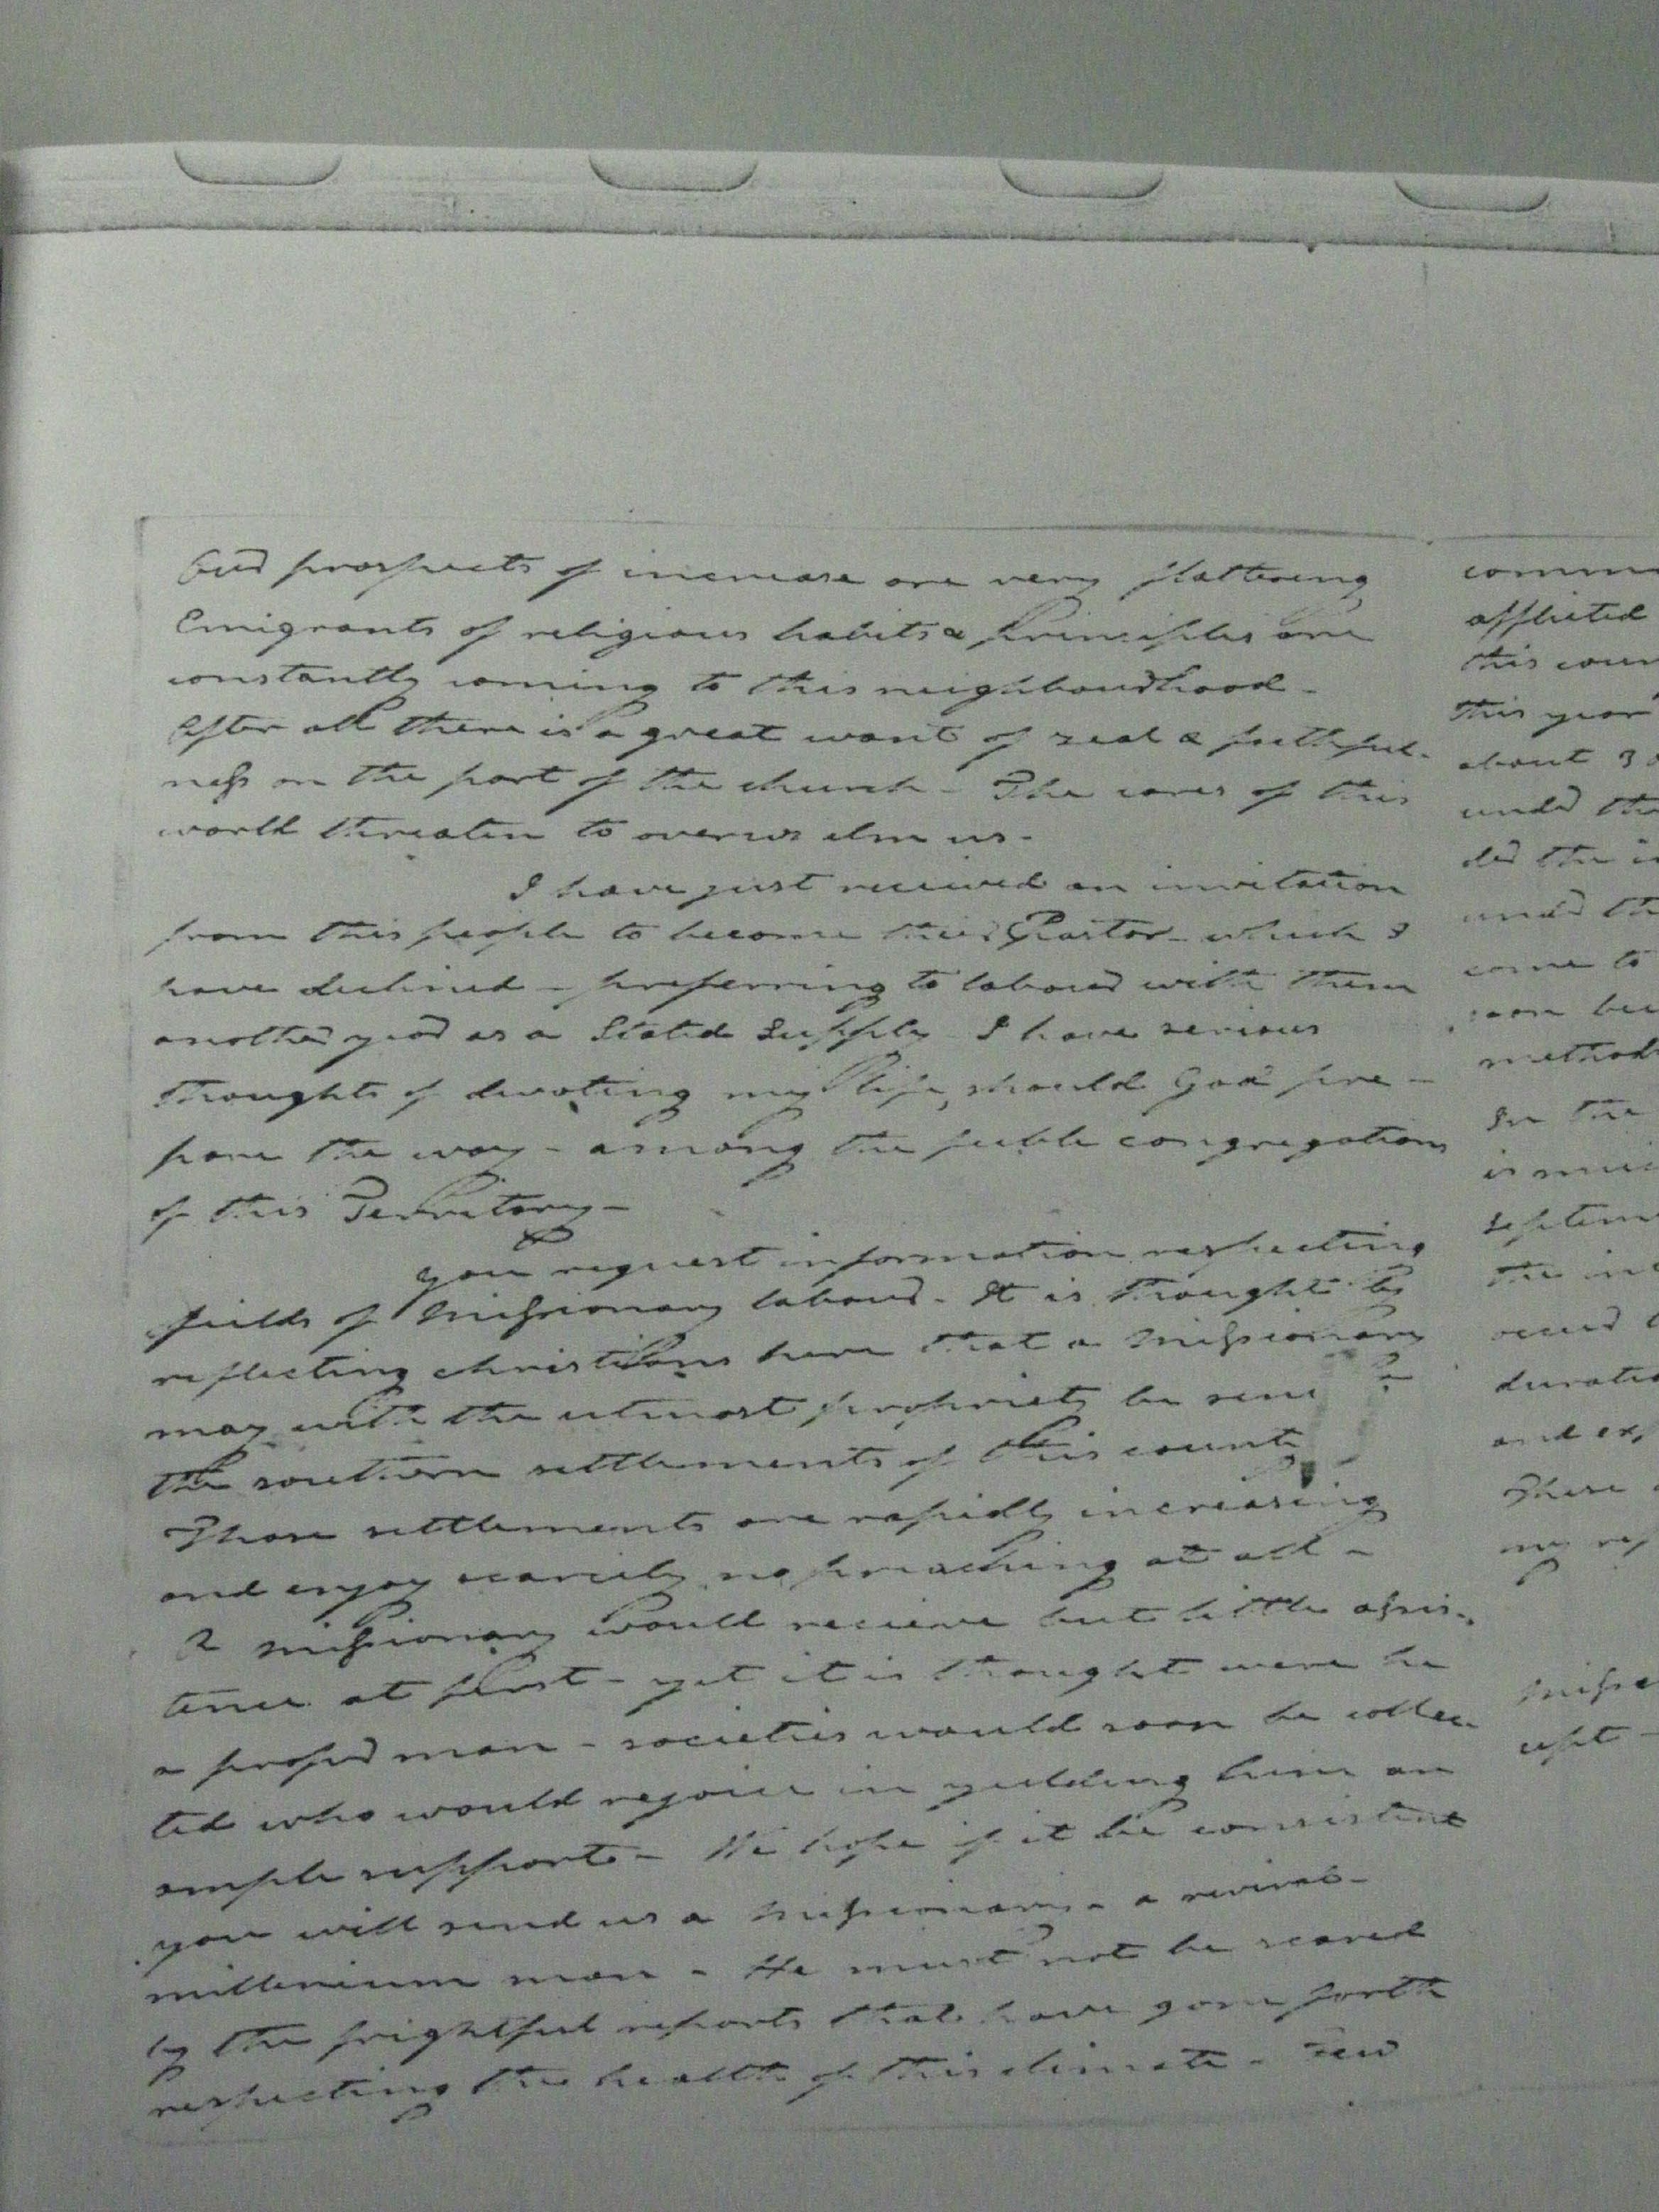 Our prospects of increase are very flattering
Emigrants of religious habits & principles are
constantly coming to this neighbourhood -
After all there is a great want of zeal & faithful-
ness on the part of the church - The cares of this
world threaten to overwhelm us -
I have just recieved an invitation
from this people to become their Pastor - which I
have declined - preferring to labour with them
another year as a Stated Supply I have serious
thoughts of devoting my life, should God pre-
pare the way - among the feeble congregations
of this Territory -
You request information respecting
fields of Missionary labour - It is thought by
reflecting christians here that a Missionary
may with the utmost propriety be sent to
the southern settlements of this county
Those settlements are rapidly increasing
and enjoy scarcely no preaching at all -
A missionary would recieve but little assis-
tance at first - yet it is thought were he
a proper man - societies would soon be collec-
ted who would rejoice in yielding him an
ample support - We hope if it be consistent
you will send us a Missionary - a revival -
millenium man - He must not be scared
by the frightful reports that have gone forth
respecting the health of this climate - Few
comm
afflicted
this coun
this year
about 30
under the
ded the i
under th
come to
soon be
method
In the
is
septem
the in
occur
duratio
and ex
There
my rep
Missi
upt -